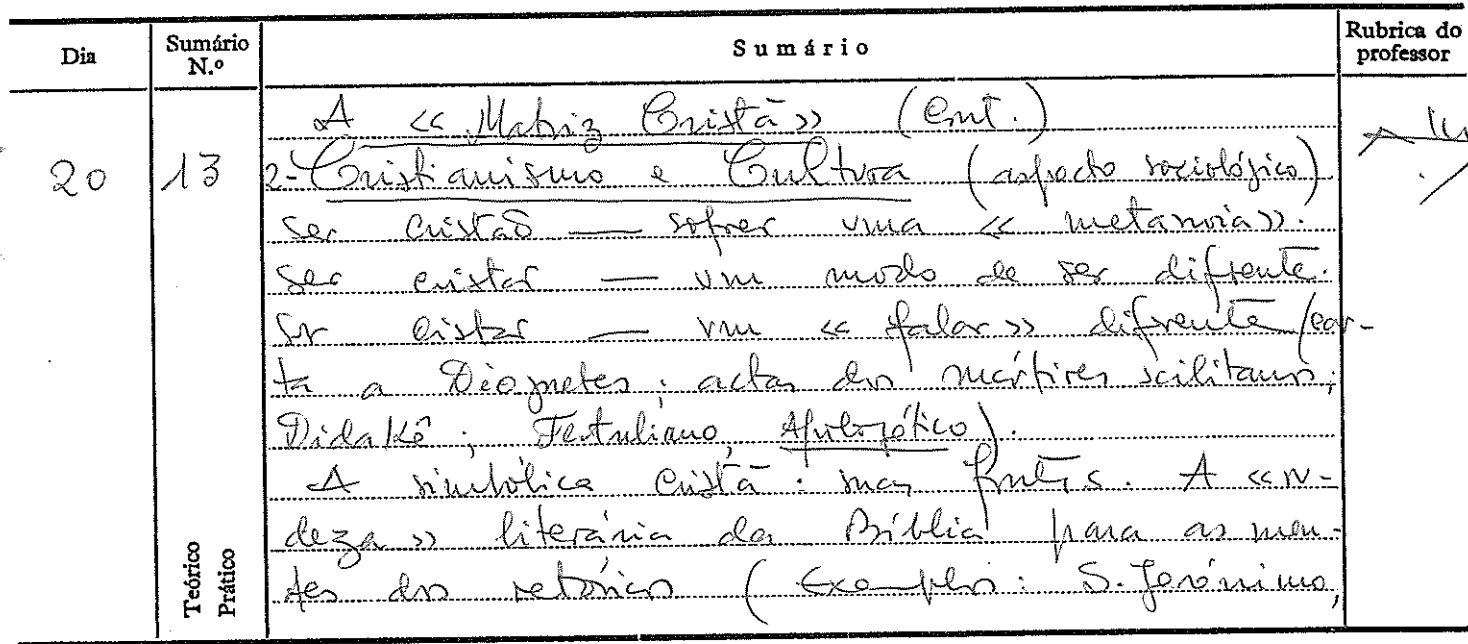 Dia Sumário N.º Sumário Rubrica do professor
A «Matriz Cristã» (Cont.)
20 13 2-Cristianismo e Cultura (aspecto sociológico)
ser cristão — sofrer uma «metanoia».
ser cristão — um modo de ser diferente.
ser cristão — um «falar» diferente (car-
ta a Diognetes; actas dos mártires scilitanos;
Didakê; Tertuliano, Apologético).
A simbólica cristã: suas fontes. A «ru-
deza» literária da Bíblia para as men-
tes dos retóricos (Exemplos: S. Jerónimo,
Teórico
Prático